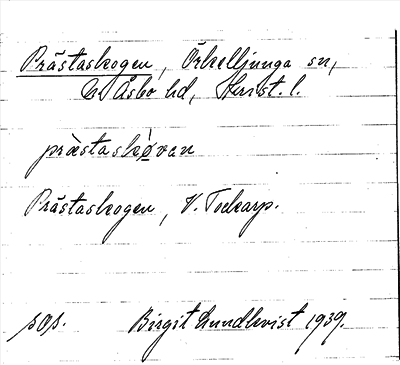 Prästaskogen, Örkelljunga sn,
N. Åsbo hd, Krist. l.
prästaskøvan
Prästaskogen, V. Torkarp.
sos. Birgit Lundkvist 1939.